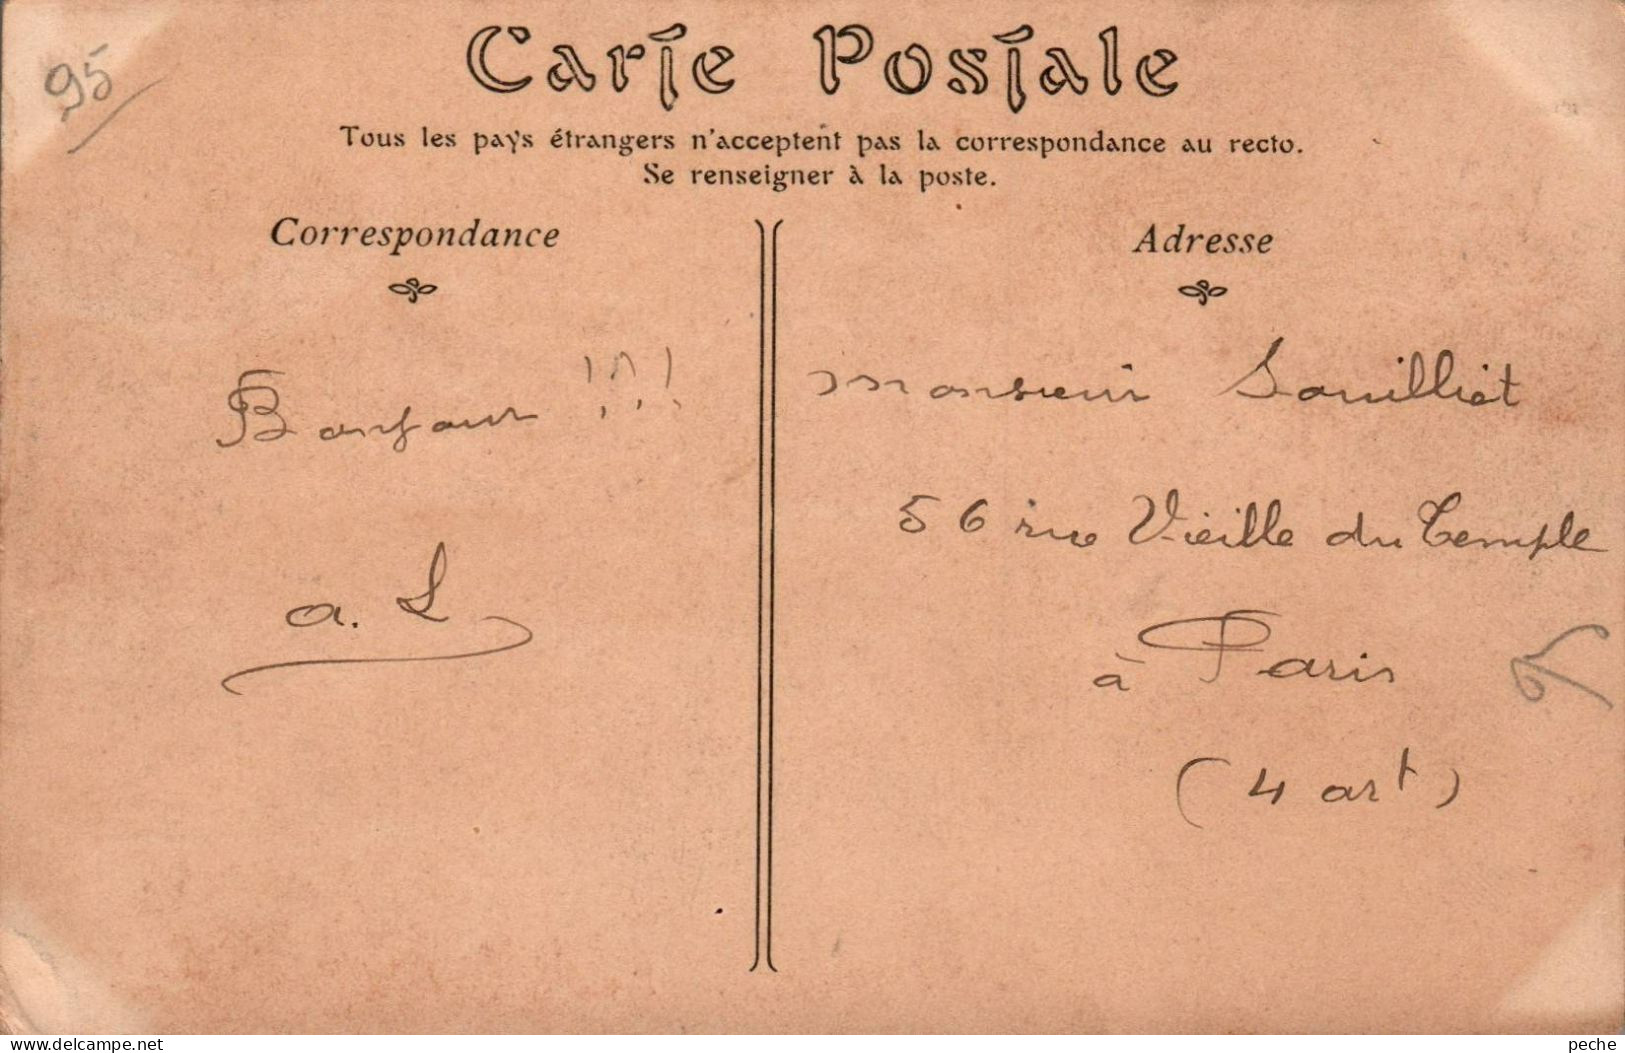 95
Carte Postale
Tous les pays étrangers n'acceptent pas la correspondance au recto.
Se renseigner à la poste.
Correspondance
Bonjour !!!
a. L
Adresse
Monsieur Souilliet
56 rue Vieille du Temple
à Paris
(4 art)
www.delcampe.net
peche